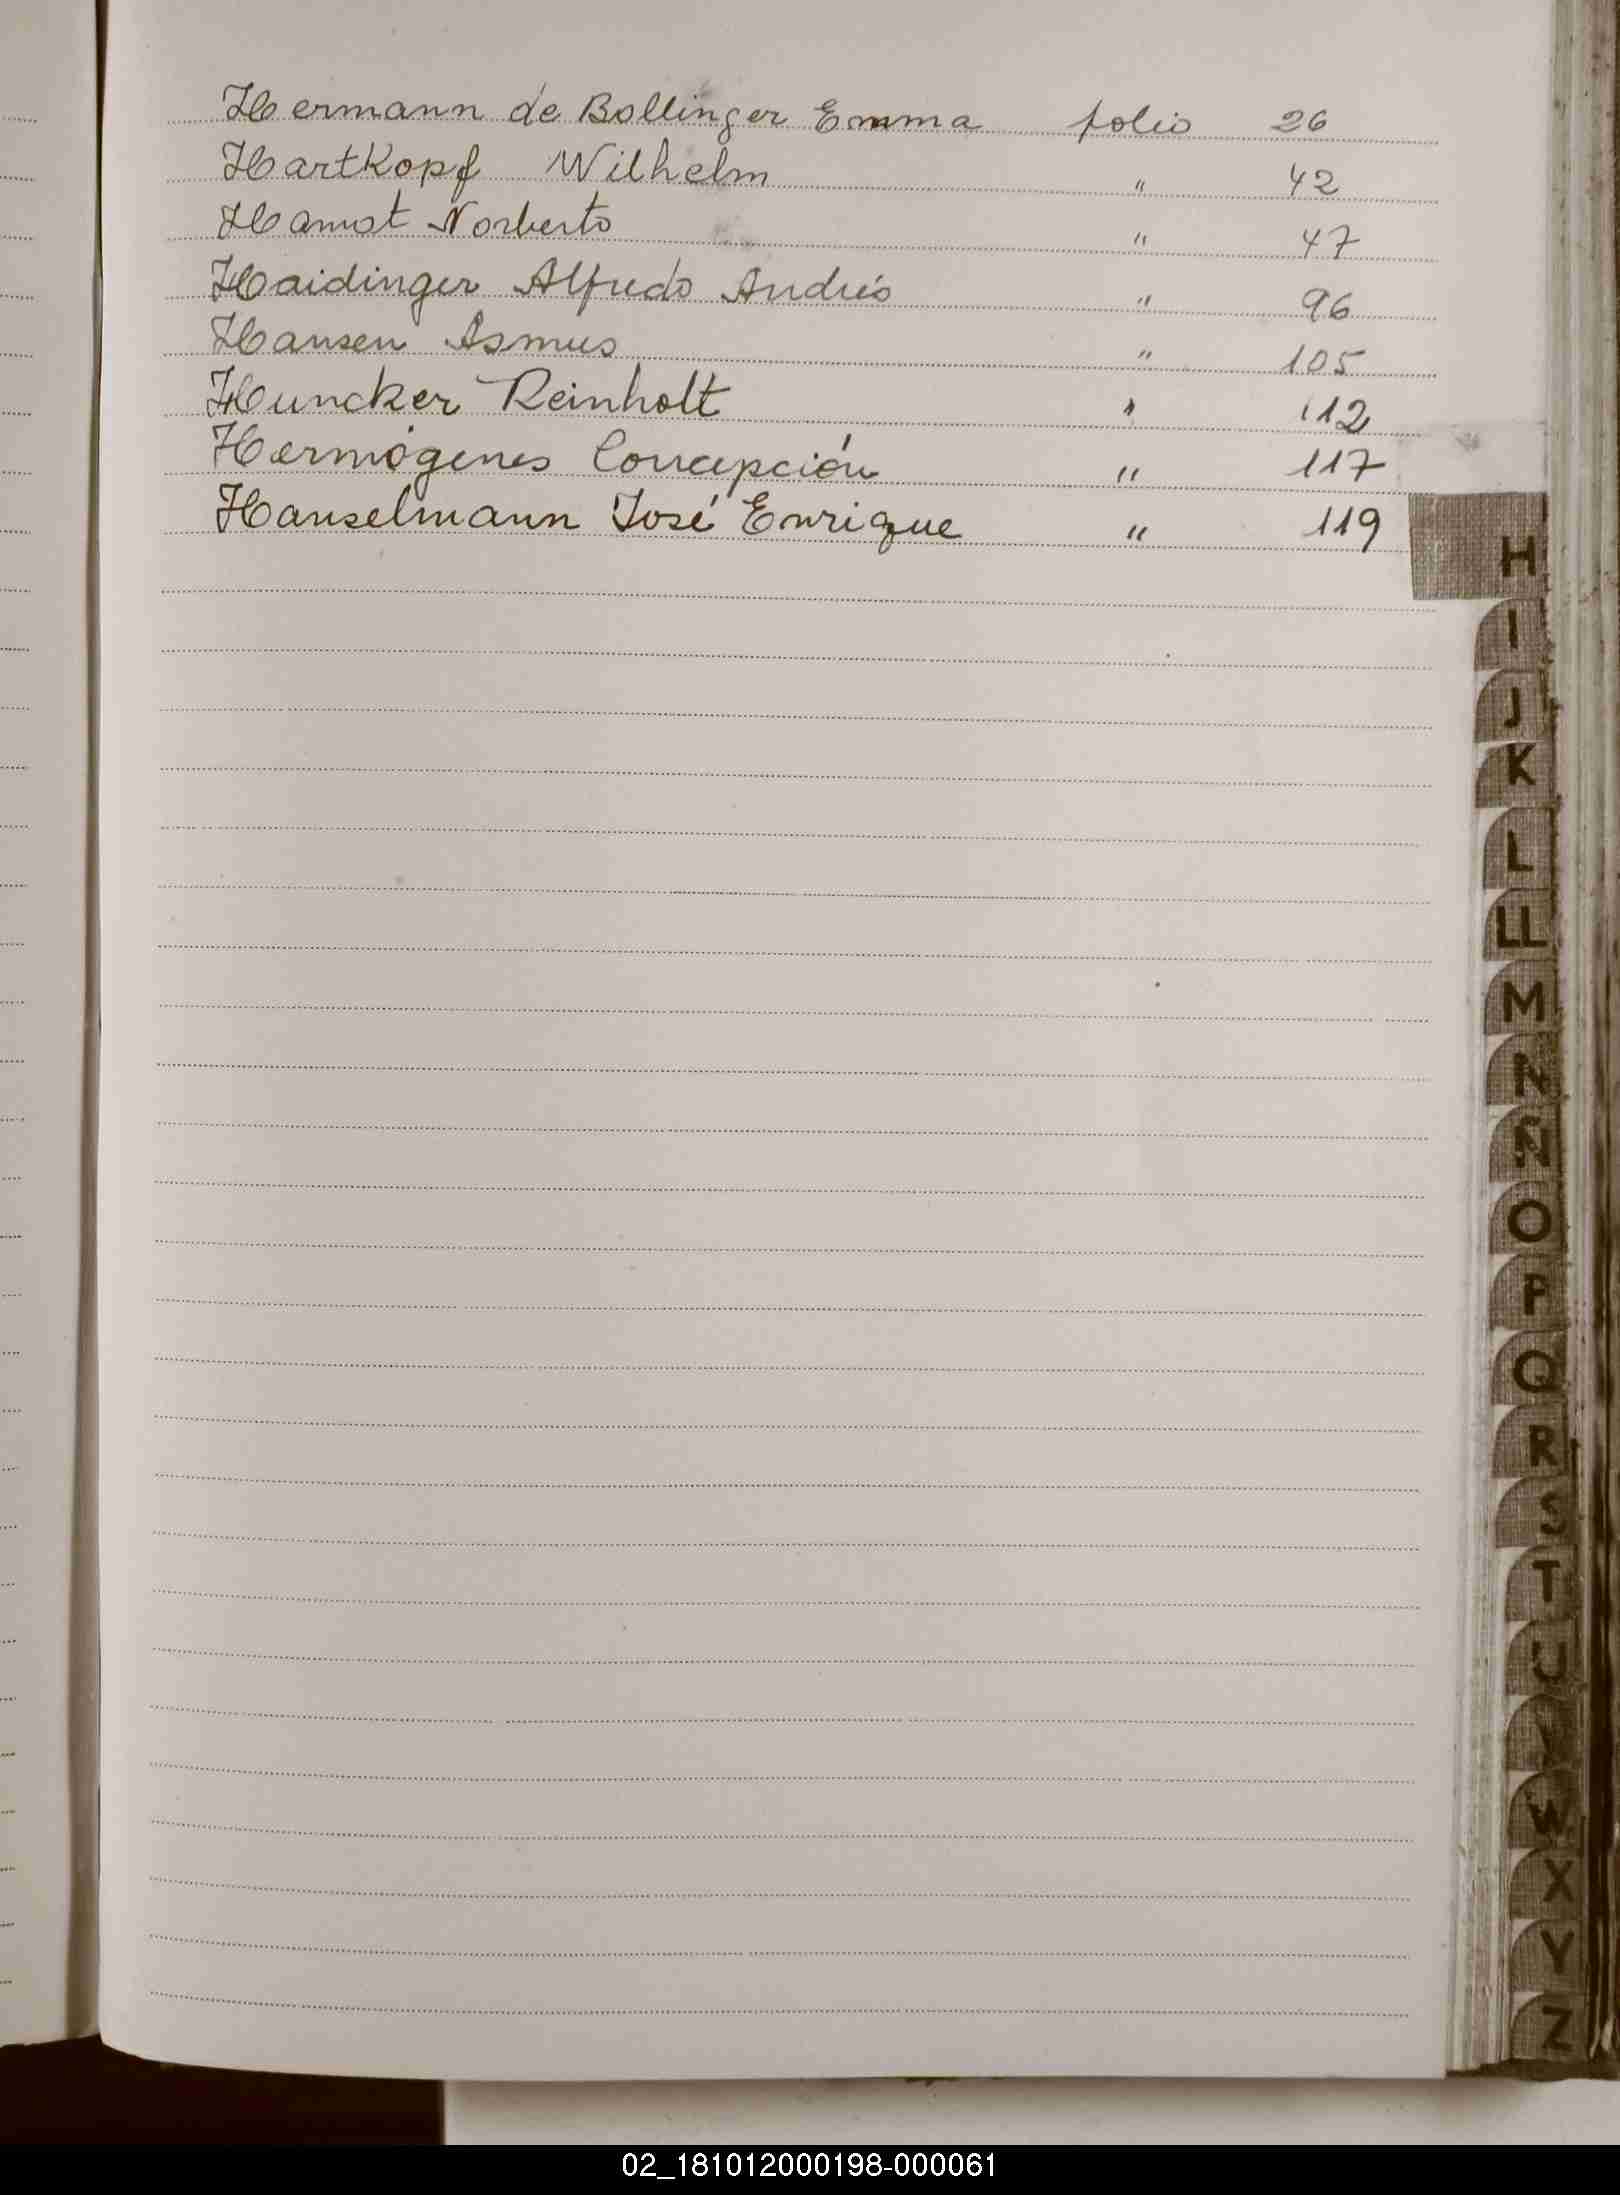 Hermann de Bollinger Emma folio 26
Hartkopf Wilhelm " 42
Hamot Norberto " 47
Haidinger Alfredo Andrés " 96
Hansen Asmus " 105
Huncker Reinholt " 112
Hermógenes Concepción " 117
Hanselmann José Enrique " 119
H
I
J
K
L
LL
M
N
Ñ
O
P
Q
R
S
T
U
V
W
X
Y
Z
02_181012000198-000061